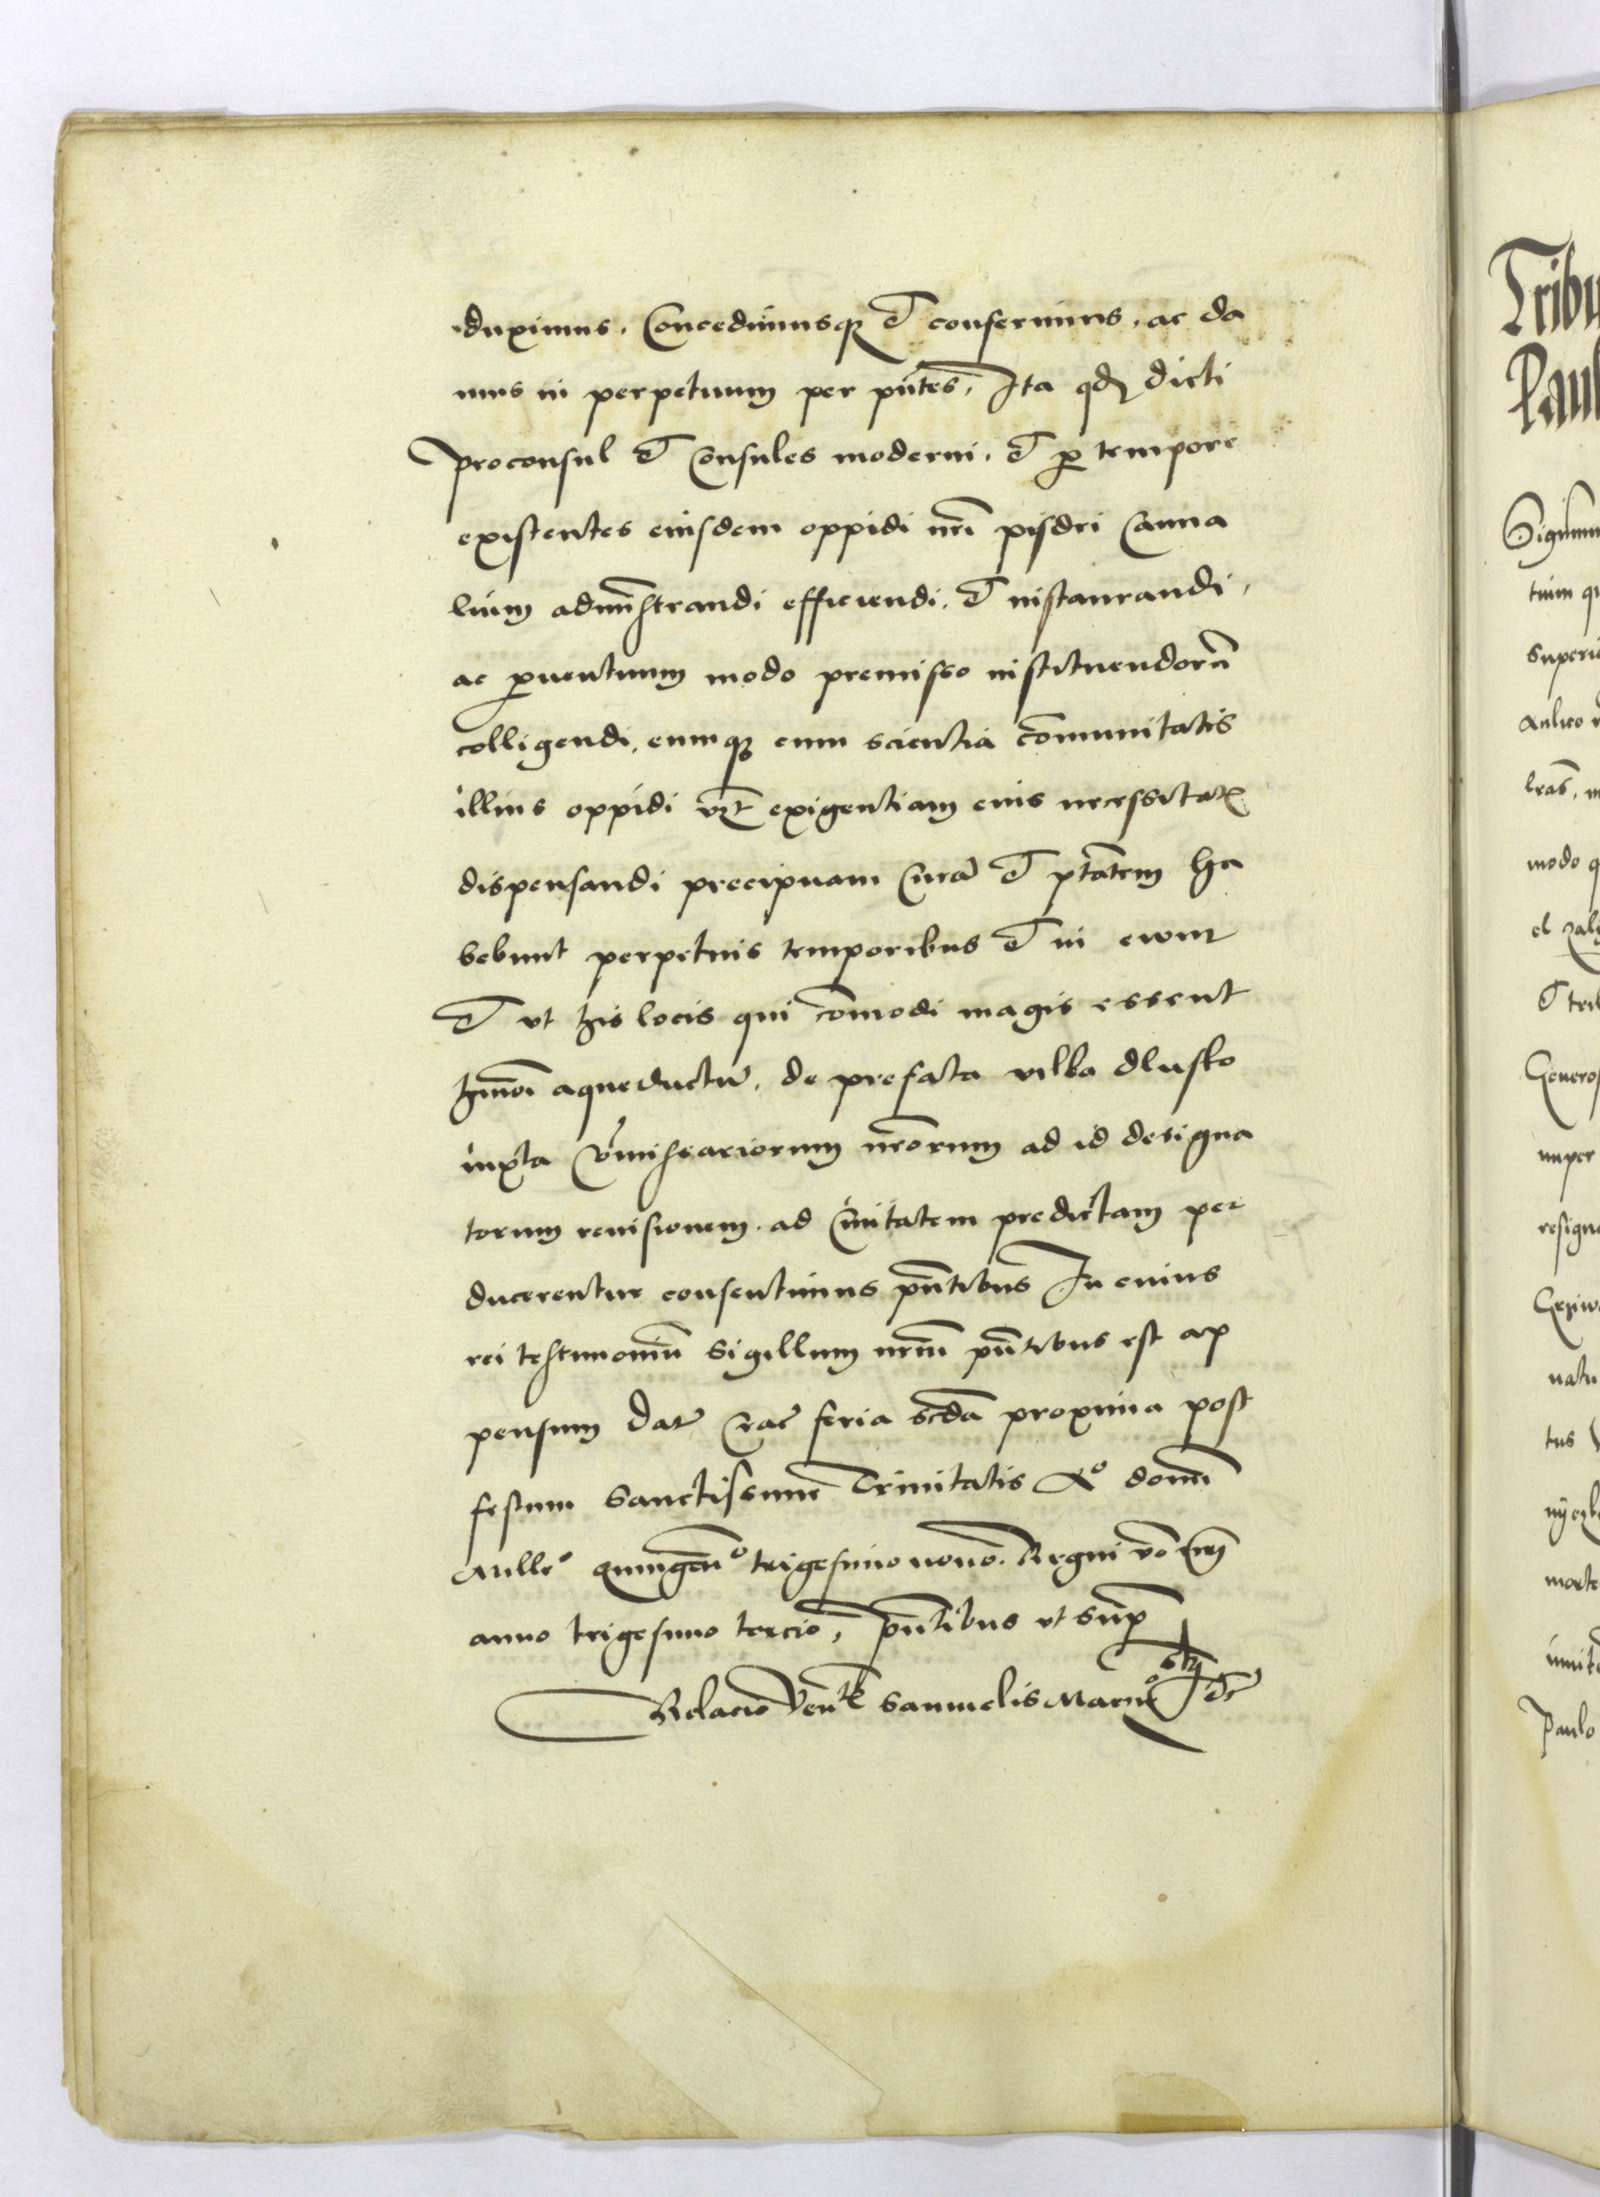 duximus. Concedimusq; et conferimus, ac da
mus in perpetuum per pñtes, Ita qd dicti
proconsul et Consules moderni, et p tempore
existentes eiusdem oppidi nrī pisdri Canna
lium admīstrandi efficiendi, et instaurandi,
ac puentuum modo premisso instituendorū
colligendi, eumq; cum scientia cōmunitatis
illius oppidi exigentiam eius necessitatꝭ
dispensandi precipuam Curā et ptātem Ha
bebunt perpetuis temporibus et in ewm
et vt his locis qui cōmodi magis essent
hmōi aqueductū, de prefata villa dlusko
iuxta Cōmissariorum nrōrum ad id designa
torum reuisionem, ad Cīuitatem predictam per
ducerentur consentimus pñtibus In cuius
rei testimoniū Sigillum nrūm pñtibus est ap
pensum Datū Crac feria scda proxima post
festum Sanctissime Trinitatis Aº domī
Millº quingenº trigesimo nono. Regni vō nrī
anno trigesimo tercio, pñtibus vt sup
Relacio Ven Samuelis Macieosky etc
Tribu
Paul
Sigismun
tuum qu
Superi
Aulico
lras, m
modo q
el zaly
et tri
Generos
nuper
resigna
natu
tus
morte
Paulo